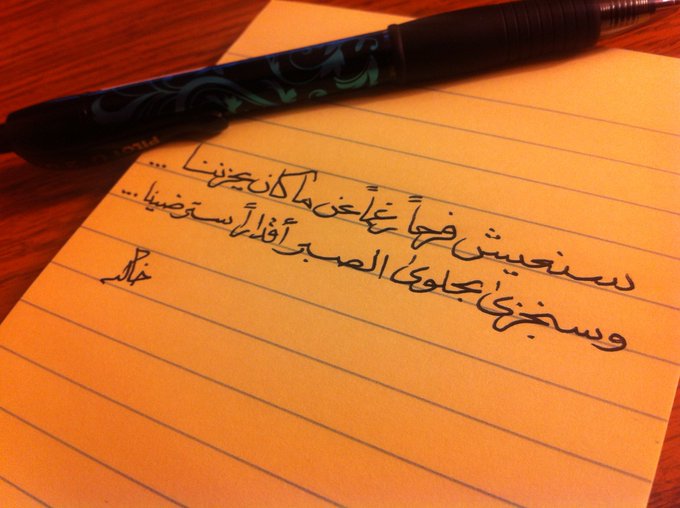 سنعيش فرحاً رغماً عن ما كان يحزننا ...
وسنجزىٰ بحلوىٰ الصبر أقداراً سترضينا ...
خالد